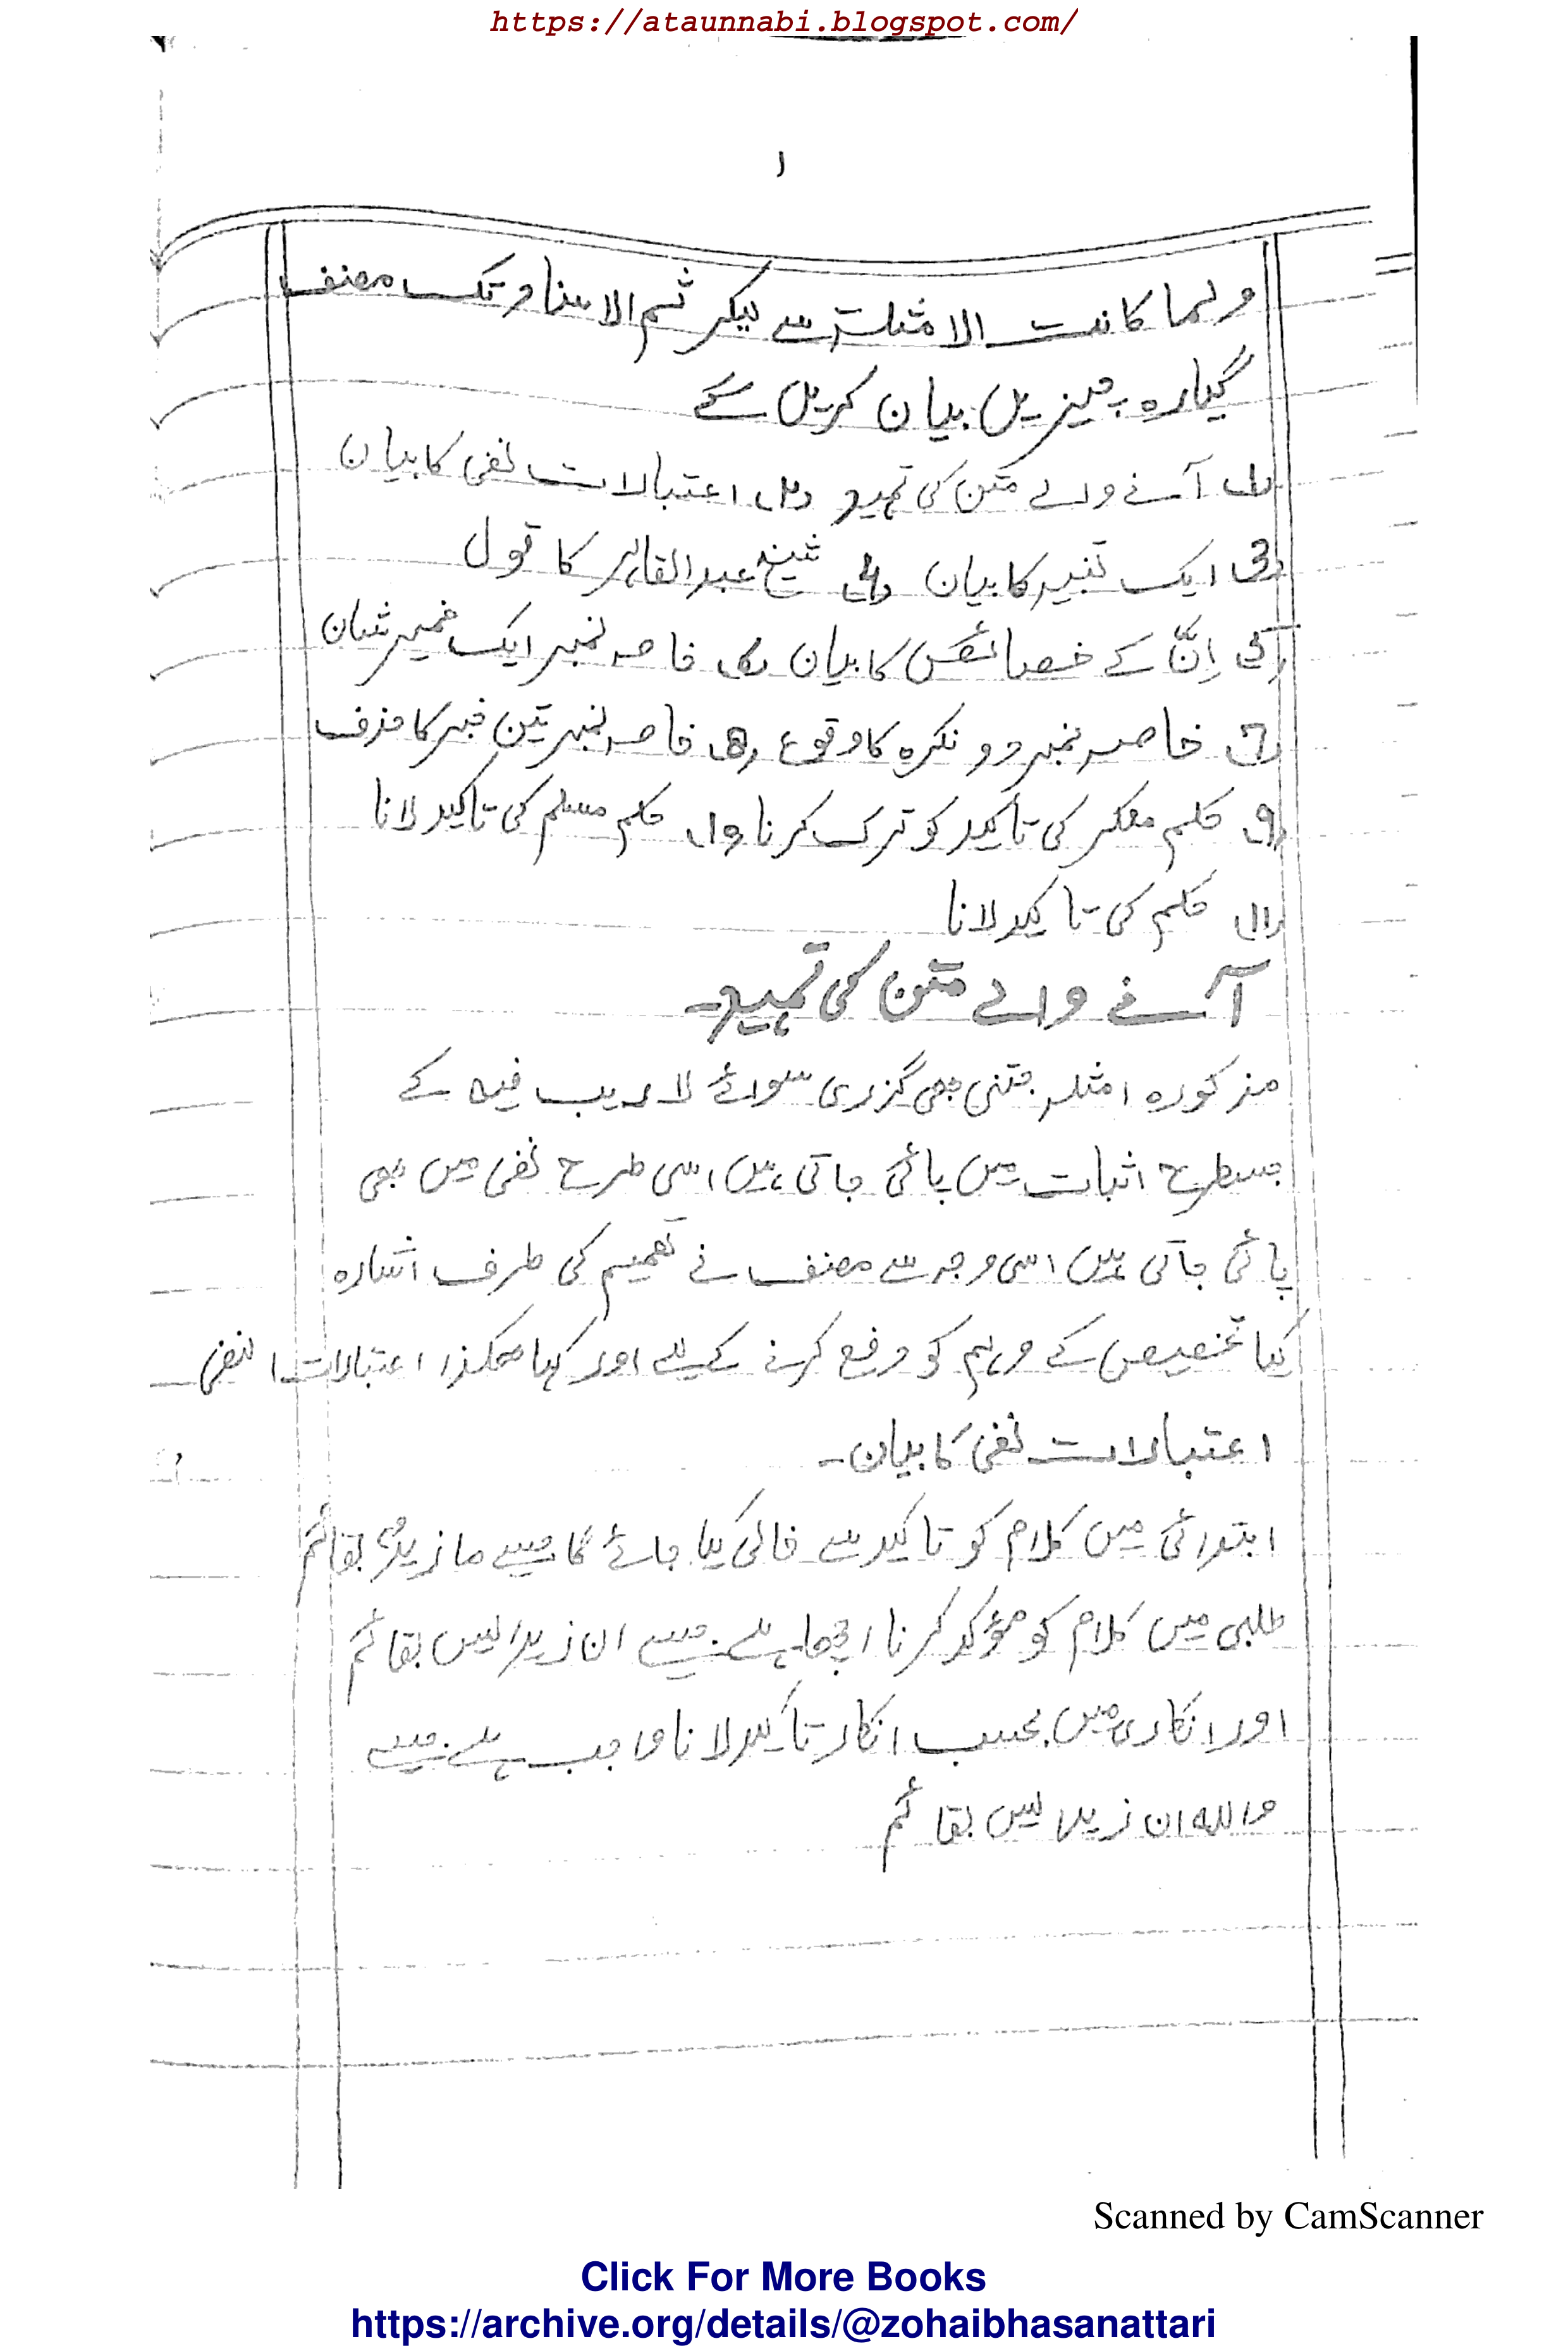 https://ataunnabi.blogspot.com/
۱
ولما کانت الامثلۃ سے لیکر ثم الاسناد تک مصنف
گیارہ چیزیں بیان کریں گے
(۱) آنے والے متن کی تمہید (۲) اعتبارات نفی کا بیان
(۳) ایک تنبیہ کا بیان (۴) شیخ عبدالقاہر کا قول
(۵) اِنَّ کے خصائص کا بیان (۶) خاصہ نمبر ایک ضمیر شان
(۷) خاصہ نمبر دو نکرہ کا وقوع (۸) خاصہ نمبر تین خبر کا حذف
(۹) حکم منکر کی تاکید کو ترک کرنا (۱۰) حکم مسلم کی تاکید لانا
(۱۱) حکم کی تاکید لانا
آنے والے متن کی تمہید۔
مذکورہ امثلہ جتنی بھی گزری سوائے لا ریب فیہ کے
جسطرح اثبات میں پائی جاتی ہیں اسی طرح نفی میں بھی
پائی جاتی ہیں اسی وجہ سے مصنف نے تعمیم کی طرف اشارہ
کیا تخصیص کے وہم کو دفع کرنے کیلئے اور کہا ھکذا اعتبارات النفی
اعتبارات نفی کا بیان۔
ابتدائی میں کلام کو تاکید سے خالی کیا جائے گا جیسے ما زیدٌ بقائم
طلبی میں کلام کو مؤکد کرنا اچھا ہے جیسے ان زیدا لیس بقائم
اور انکاری میں بحسب انکار تاکید لانا واجب ہے جیسے
واللہ ان زیدا لیس بقائم
Scanned by CamScanner
Click For More Books
https://archive.org/details/@zohaibhasanattari